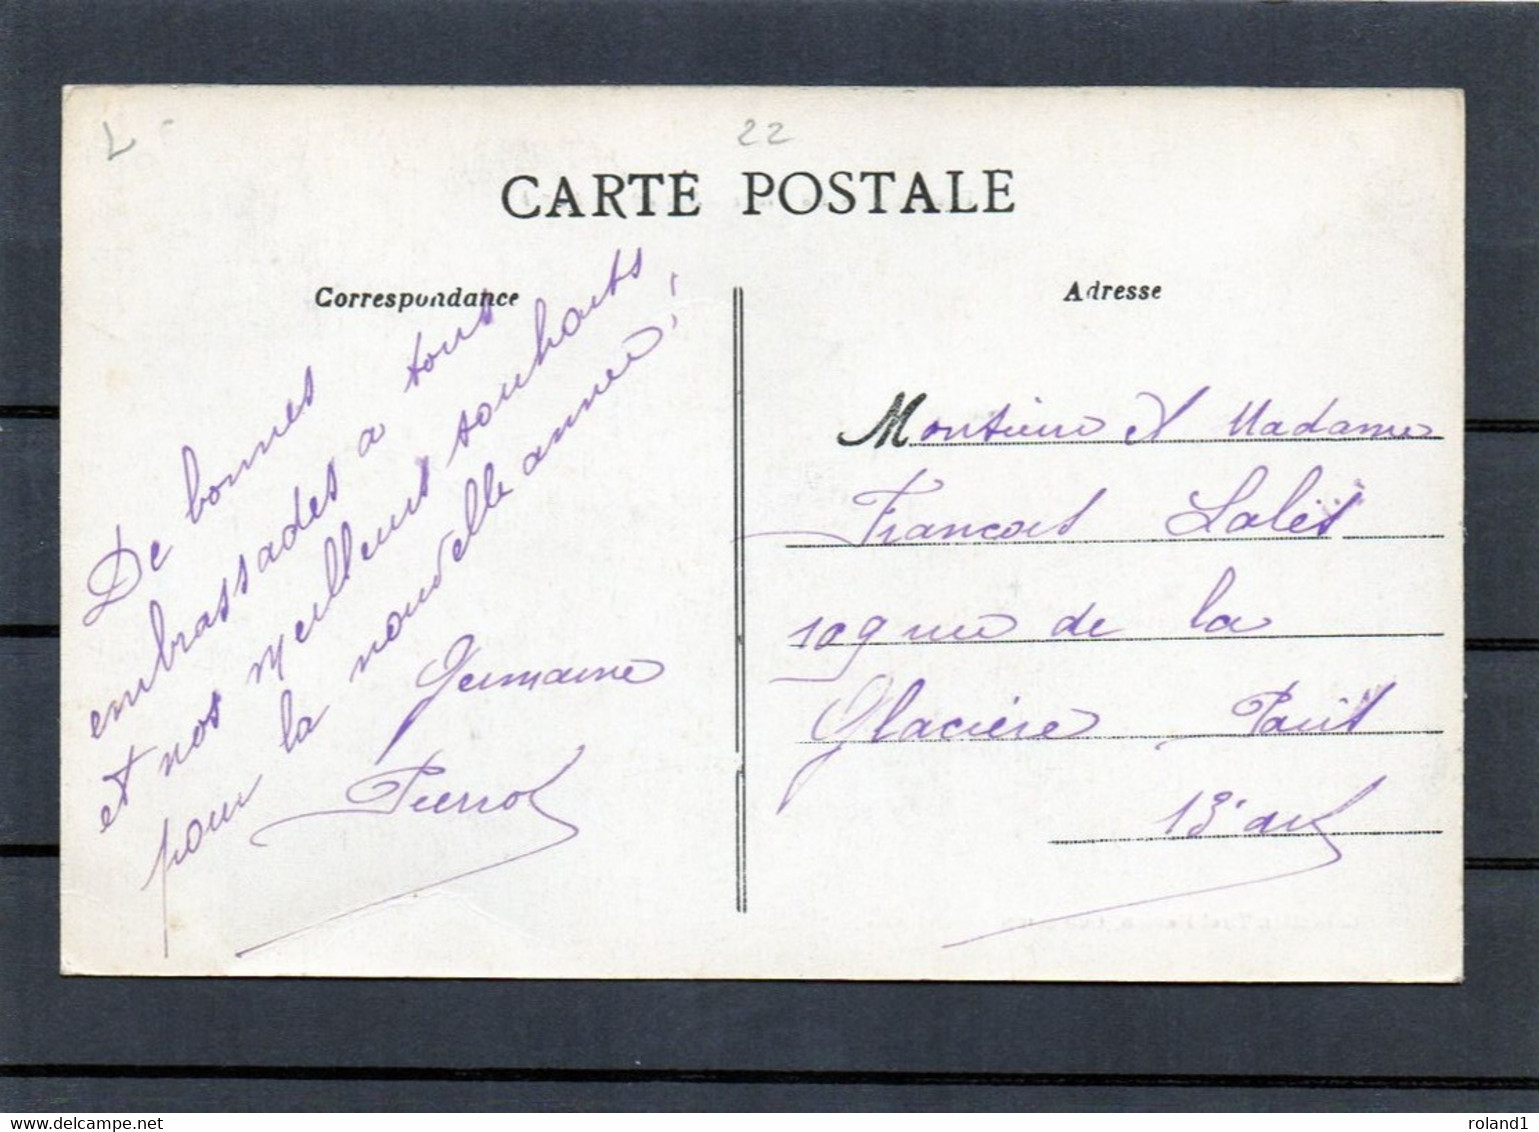 L
22
CARTE POSTALE
Correspondance
De bonnes
embrassades a tous
et nos meilleurs souhaits
pour la nouvelle année!
Germaine
Pierrot
Adresse
Monsieur et Madame
François
109 rue de la
Glacière Paris
13e arr
roland1